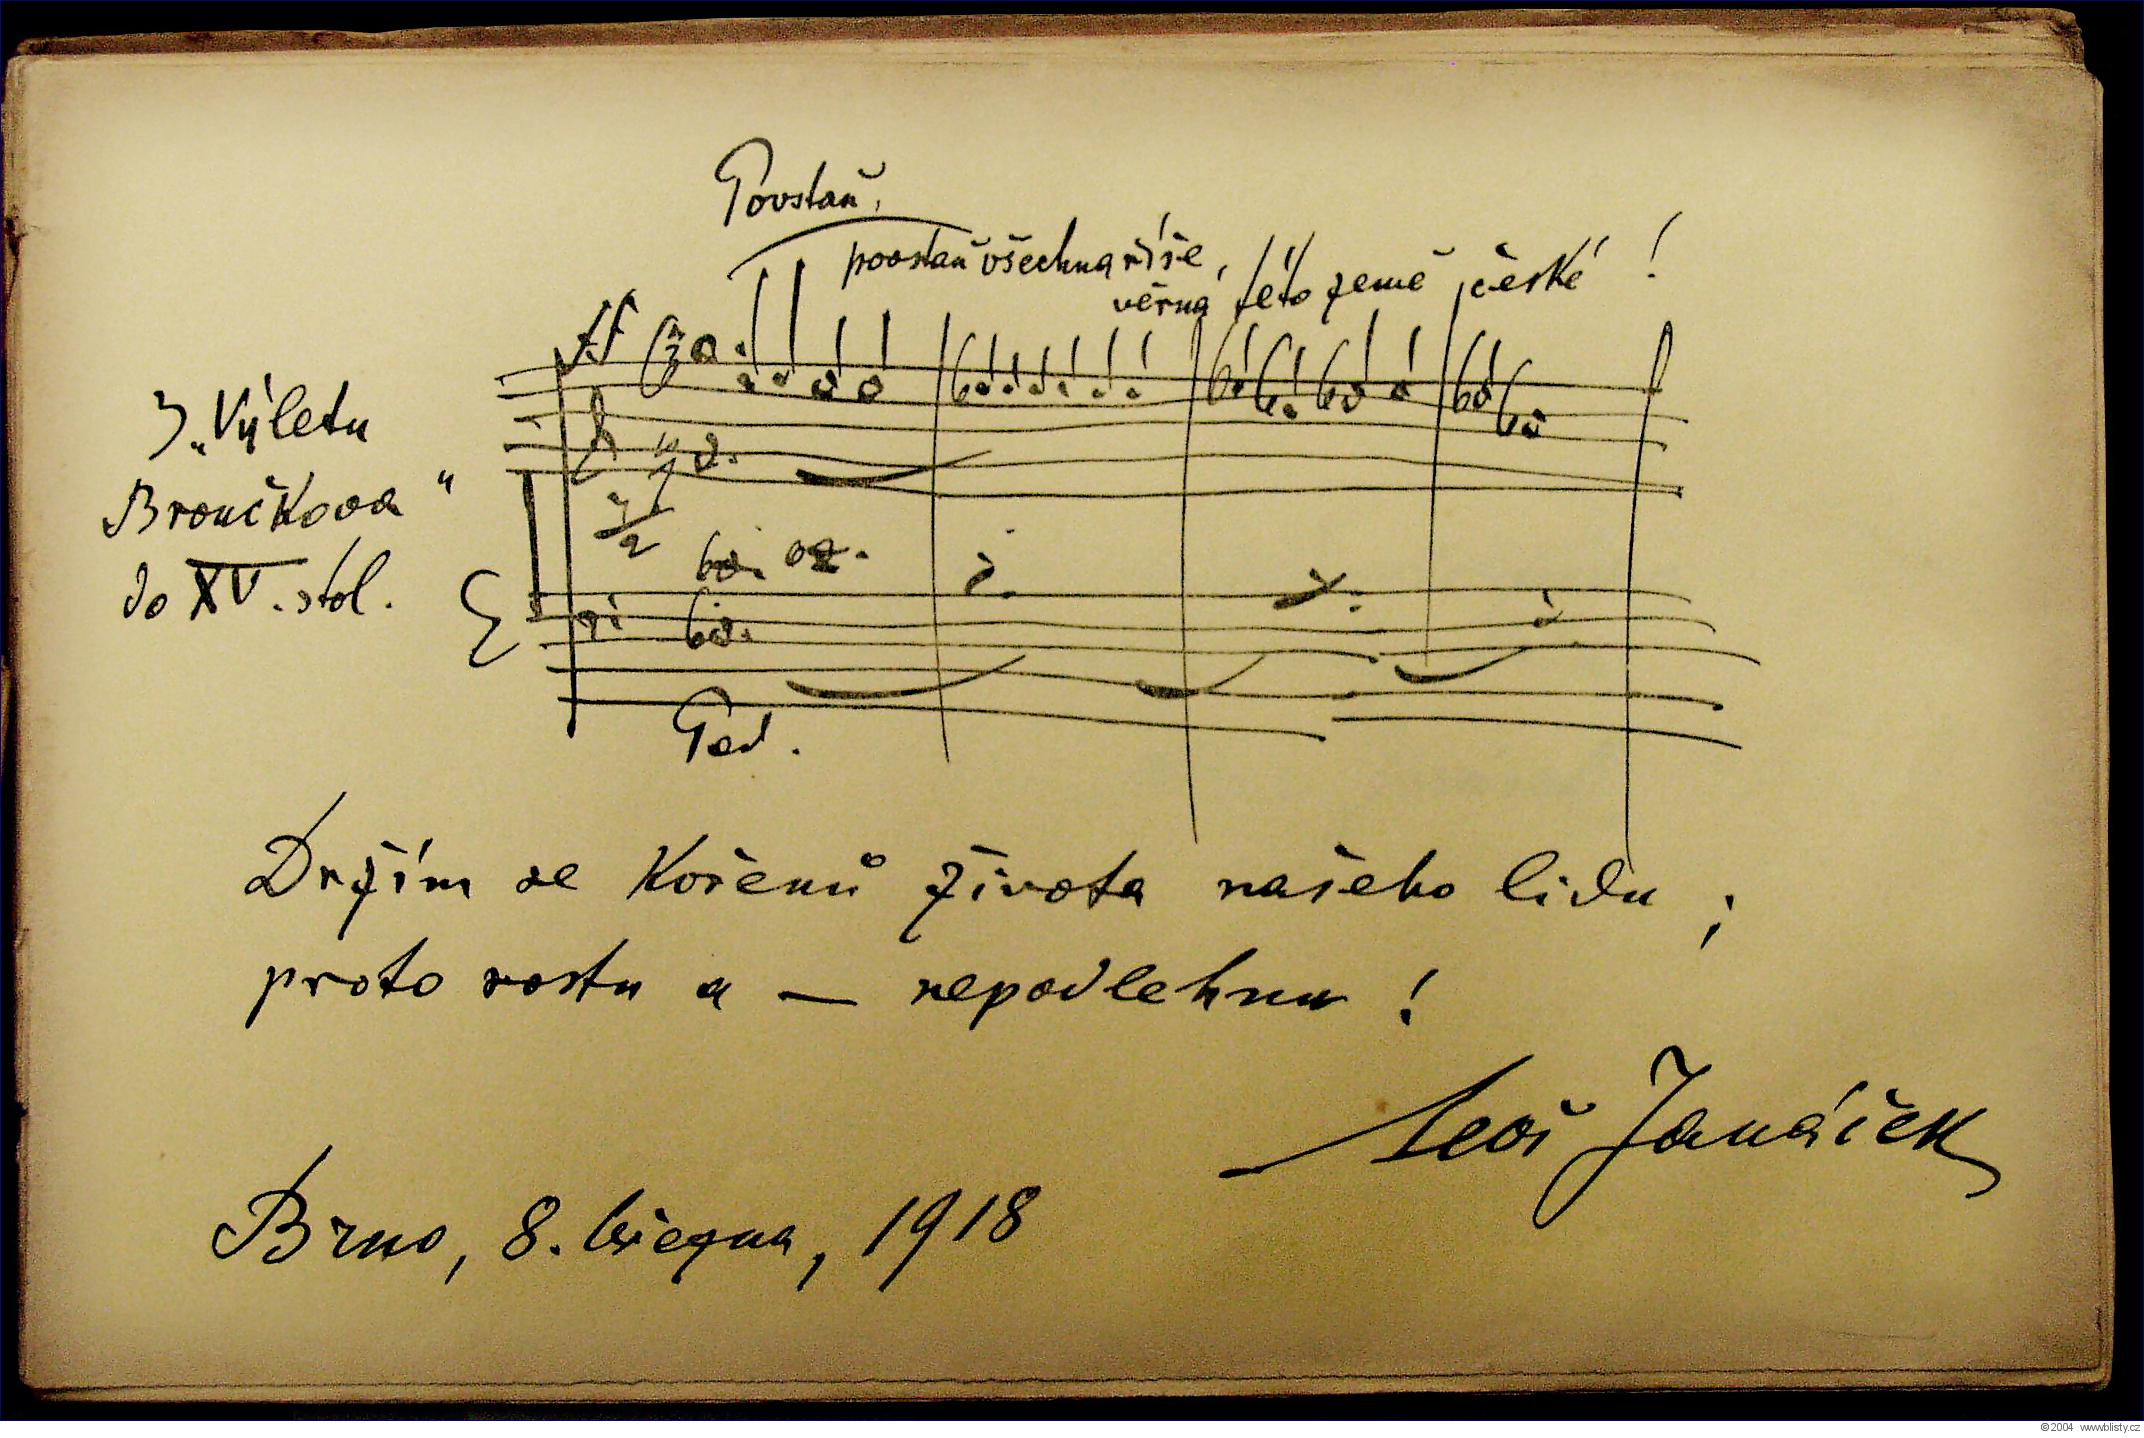 Povstaň,
povstaň všechna říše,
věrná této země české !
ff
Z „Výletu
Broučkova“
do XV. stol.
Ped.
Držím se kořenů života našeho lidu ;
proto rostu a — nepodlehnu !
Leoš Janáček
Brno, 8. března, 1918
© 2004 www.blisty.cz